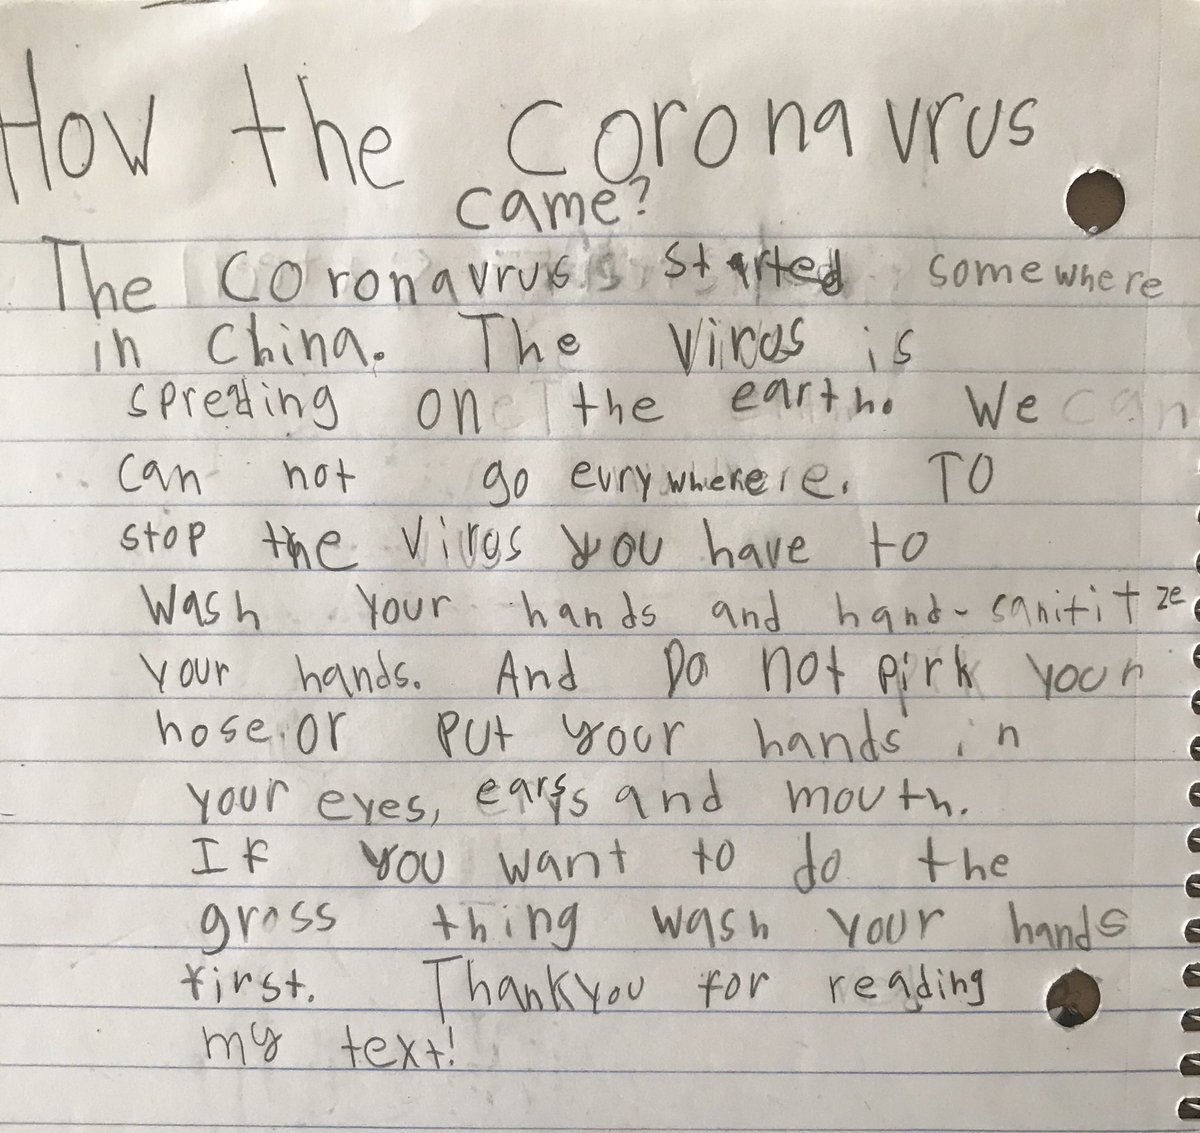 How the coronavrus
came?
The Coronavrus started somewhere
in China. The Viros is
spreding on the earth. We can
can not go evrywherere. TO
stop the Viros you have to
Wash Your hands and hand-sanititze
your hands. And Do not pirk your
nose or put your hands in
your eyes, earss and mouth.
If you want to do the
gross thing wash your hands
first. Thankyou for reading
my text!